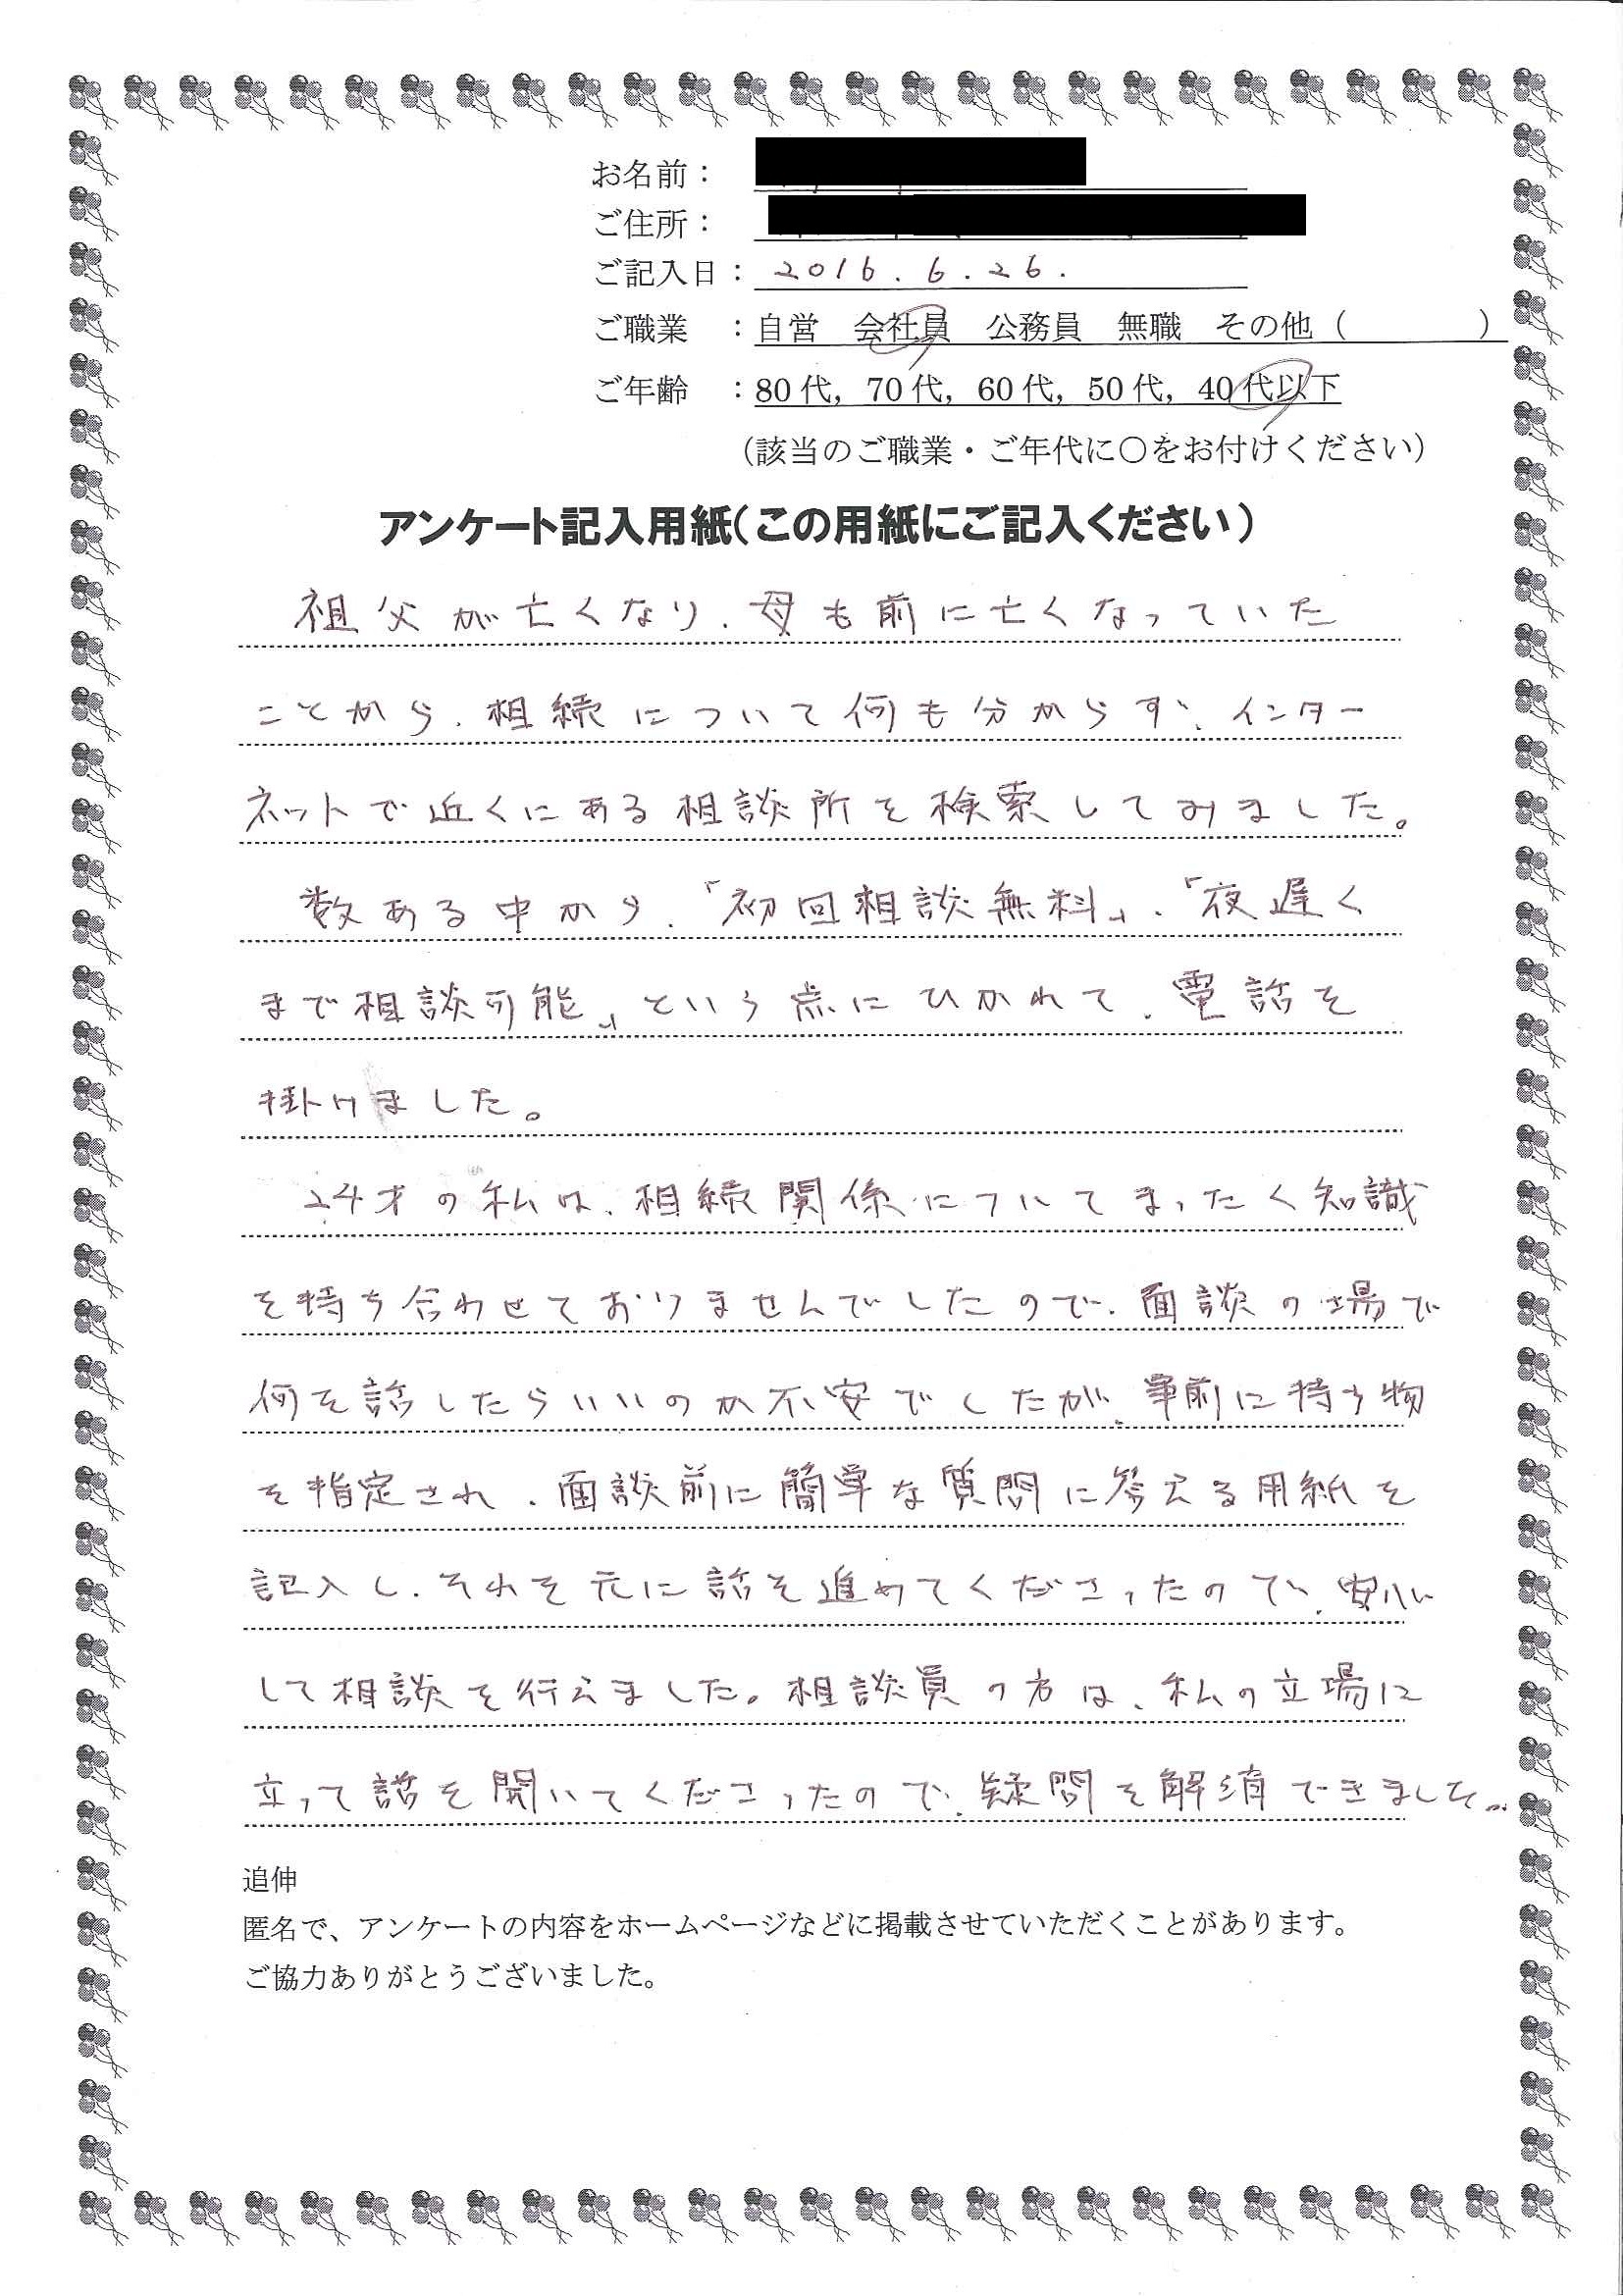 お名前：
ご住所：
ご記入日：2016.6.26.
ご職業　：自営　会社員　公務員　無職　その他（　　　　）
ご年齢　：80代，70代，60代，50代，40代以下
（該当のご職業・ご年代に〇をお付けください）
アンケート記入用紙（この用紙にご記入ください）
祖父が亡くなり、母も前に亡くなっていた
ことから、相続について何も分からず、インター
ネットで近くにある相談所を検索してみました。
数ある中から、「初回相談無料」、「夜遅く
まで相談可能」という点にひかれて、電話を
掛けました。
24才の私は、相続関係についてまったく知識
を持ち合わせておりませんでしたので、面談の場で
何を話したらいいのか不安でしたが、事前に持ち物
を指定され、面談前に簡単な質問に答える用紙を
記入し、それを元に話を進めてくださったので、安心
して相談を行えました。相談員の方は、私の立場に
立って話を聞いてくださったので、疑問を解消できました。
追伸
匿名で、アンケートの内容をホームページなどに掲載させていただくことがあります。
ご協力ありがとうございました。